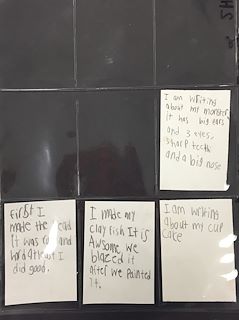 I am writing
about my monster
It has big ears
and 3 eyes,
sharp teeth
and a big nose
first I
made the head
It was
and
hard at least I
did good.
I made my
clay fish It is
Awsome, we
blazed it
after we painted
It.
I am writing
about my cup
cake